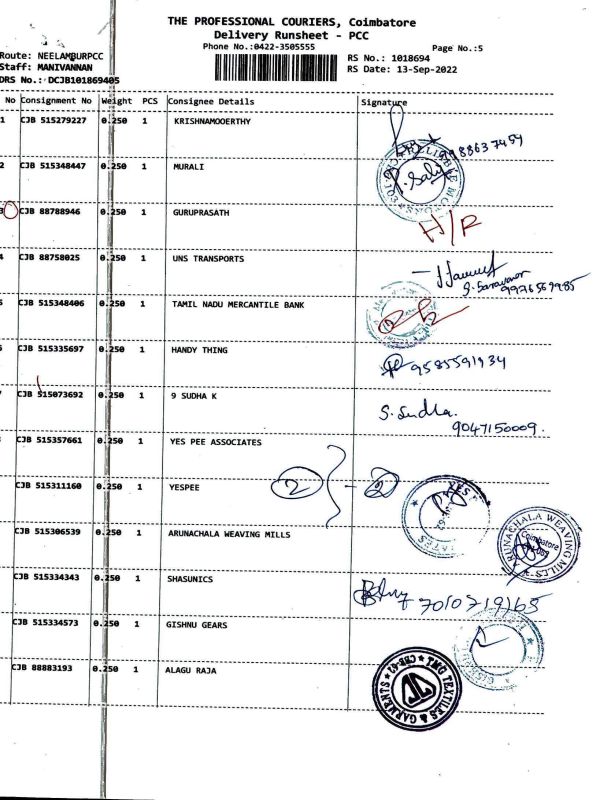 THE PROFESSIONAL COURIERS, Coimbatore
Delivery Runsheet - PCC
Phone No.:0422-3505555
Page No.:5
Route: NEELAMBURPCC
RS No.: 1018694
Staff: MANIVANNAN
RS Date: 13-Sep-2022
DRS No.: DCJB101869405
No Consignment No Weight PCS Consignee Details Signature
1 CJB 515279227 0.250 1 KRISHNAMOOERTHY
2 CJB 515348447 0.250 1 MURALI
3 CJB 88788946 0.250 1 GURUPRASATH
H/R
4 CJB 88758025 0.250 1 UNS TRANSPORTS
S. Saravanan
9976569985
5 CJB 515348406 0.250 1 TAMIL NADU MERCANTILE BANK
CJB 515335697 0.250 1 HANDY THING
9585591934
7 CJB 515073692 0.250 1 9 SUDHA K
S. Sudha.
9047150009.
CJB 515357661 0.250 1 YES PEE ASSOCIATES
CJB 515311160 0.250 1 YESPEE
2 - 2
CJB 515306539 0.250 1 ARUNACHALA WEAVING MILLS
ARUNACHALA WEAVING MILLS
Coimbatore
CJB 515334343 0.250 1 SHASUNICS
7010719165
CJB 515334573 0.250 1 GISHNU GEARS
CJB 88883193 0.250 1 ALAGU RAJA
TMG TEXTILES & GARMENTS ★ CBE-62 ★